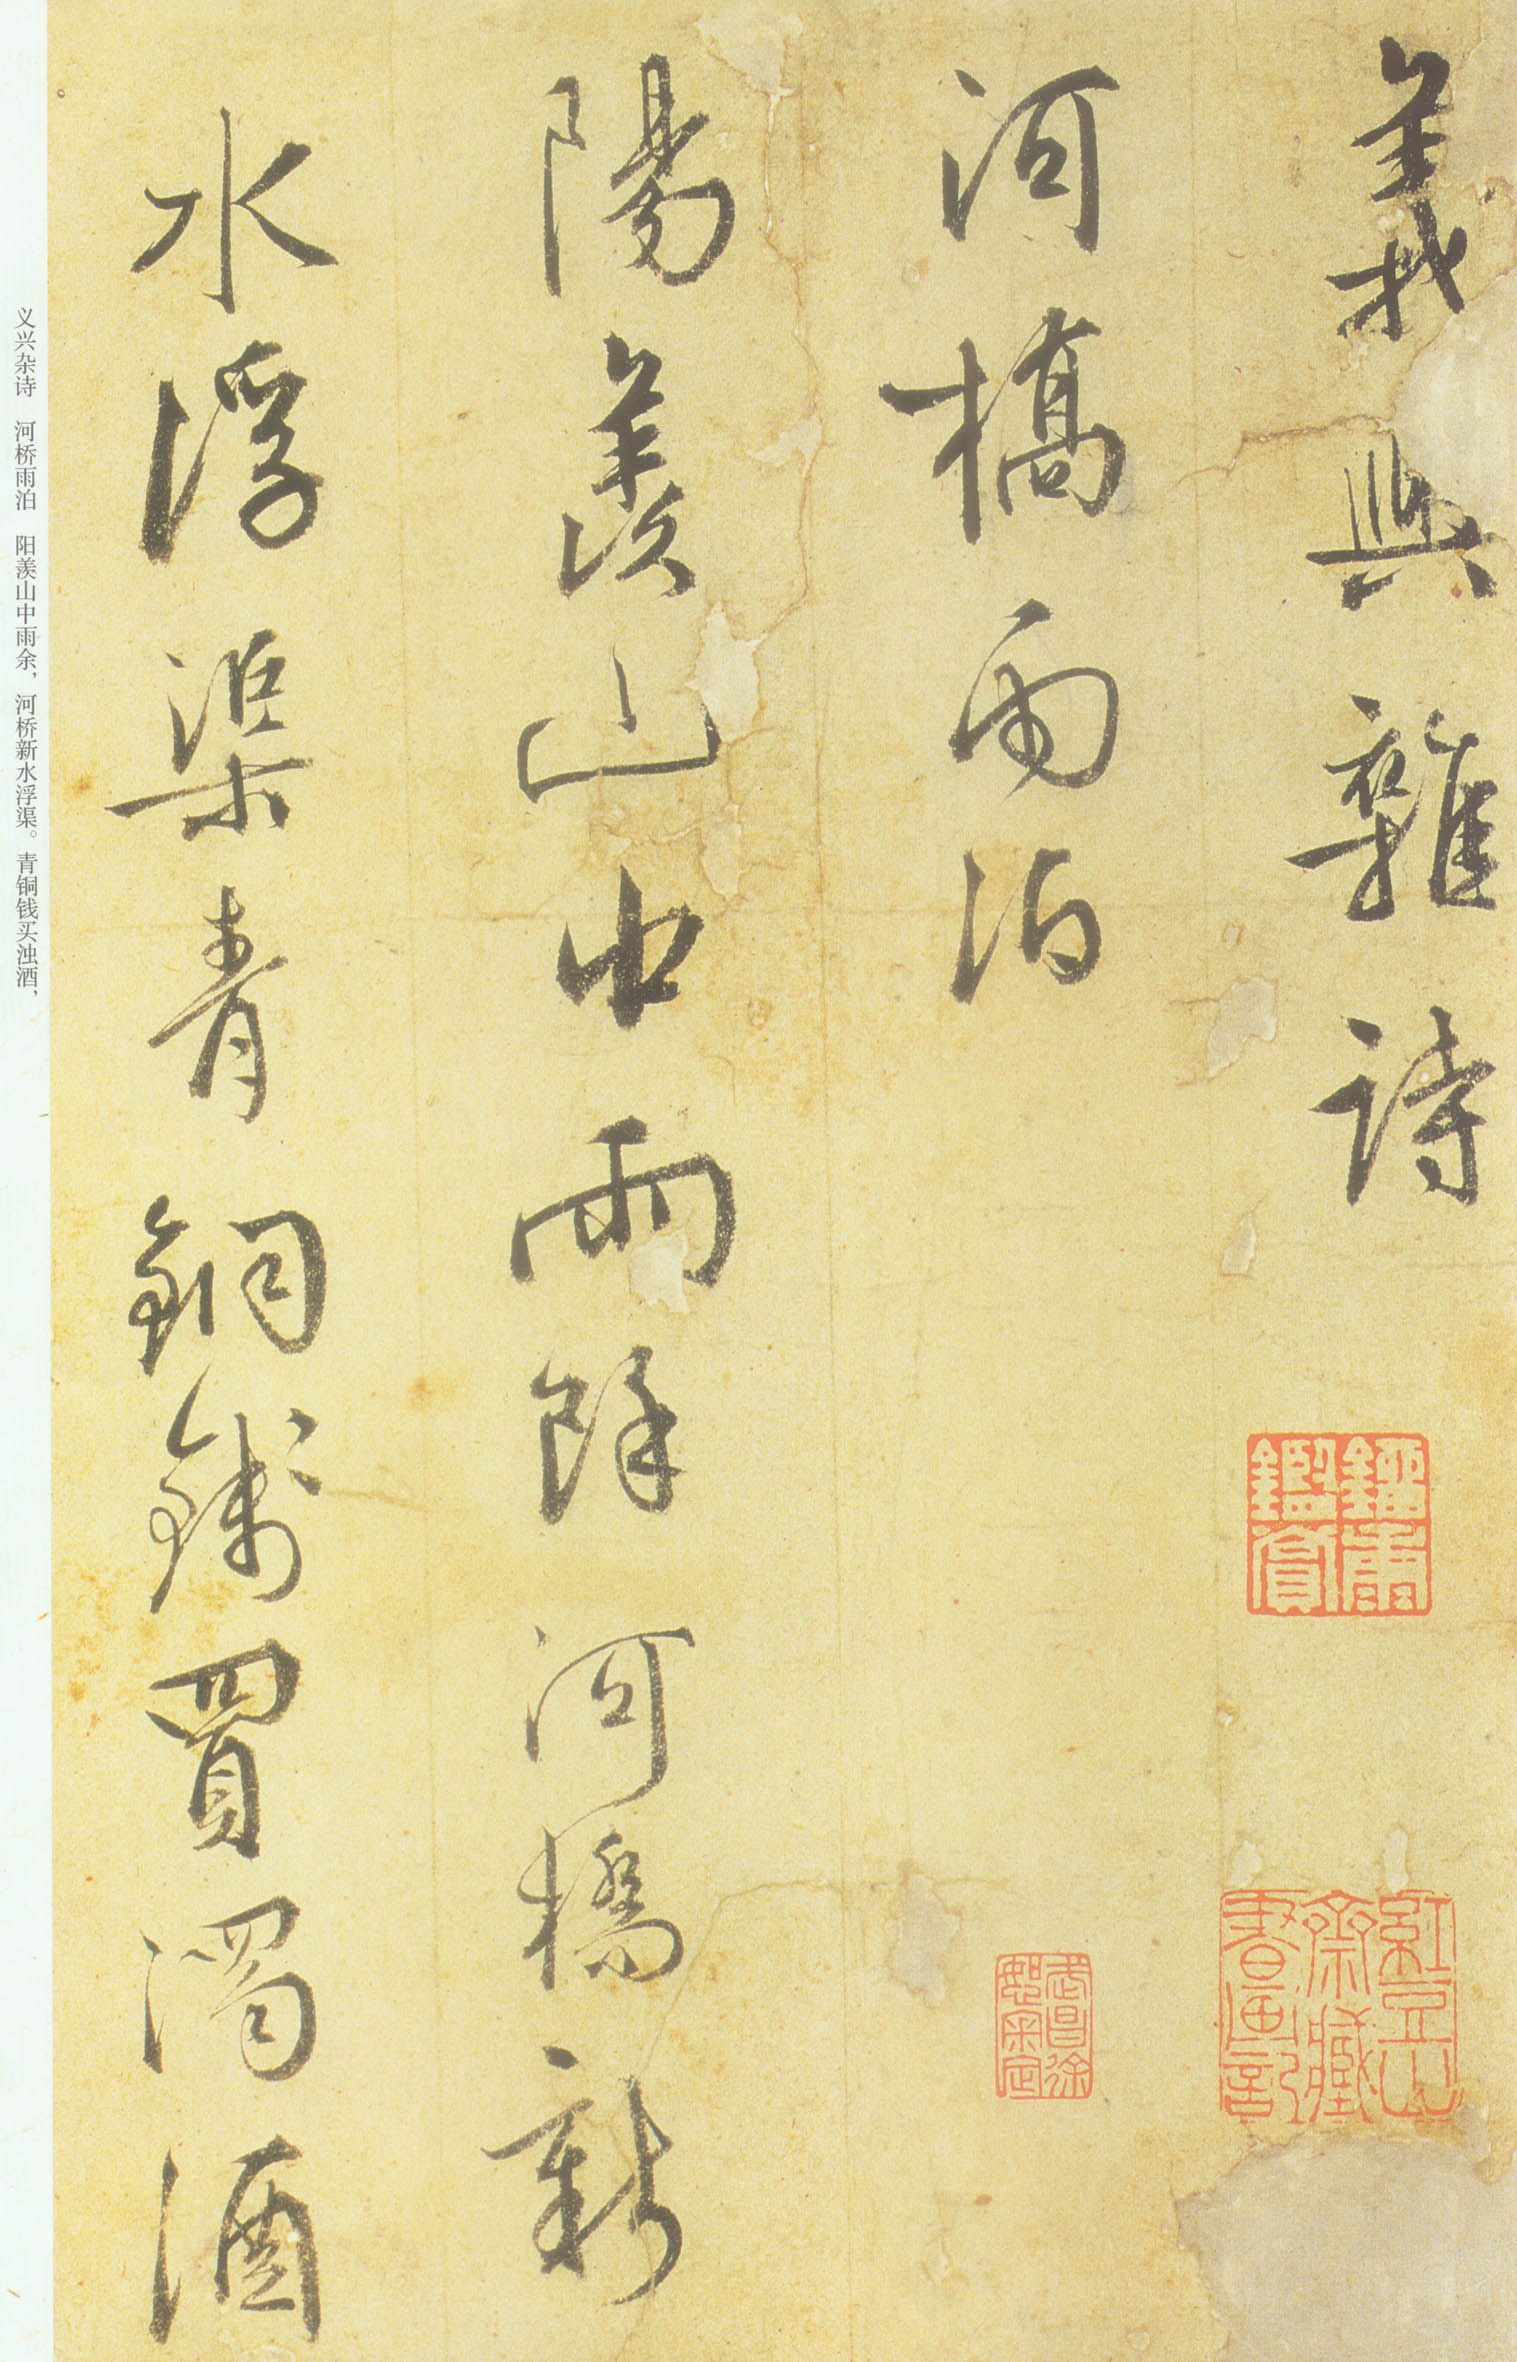 義興雜詩
河橋雨泊
陽羨山中雨餘河橋新
水浮渠青銅錢買濁酒
鑑賞
紅豆山
齋藏
書畫記
武昌徐
恕審定
义兴杂诗　河桥雨泊　阳羡山中雨余，河桥新水浮渠。青铜钱买浊酒，